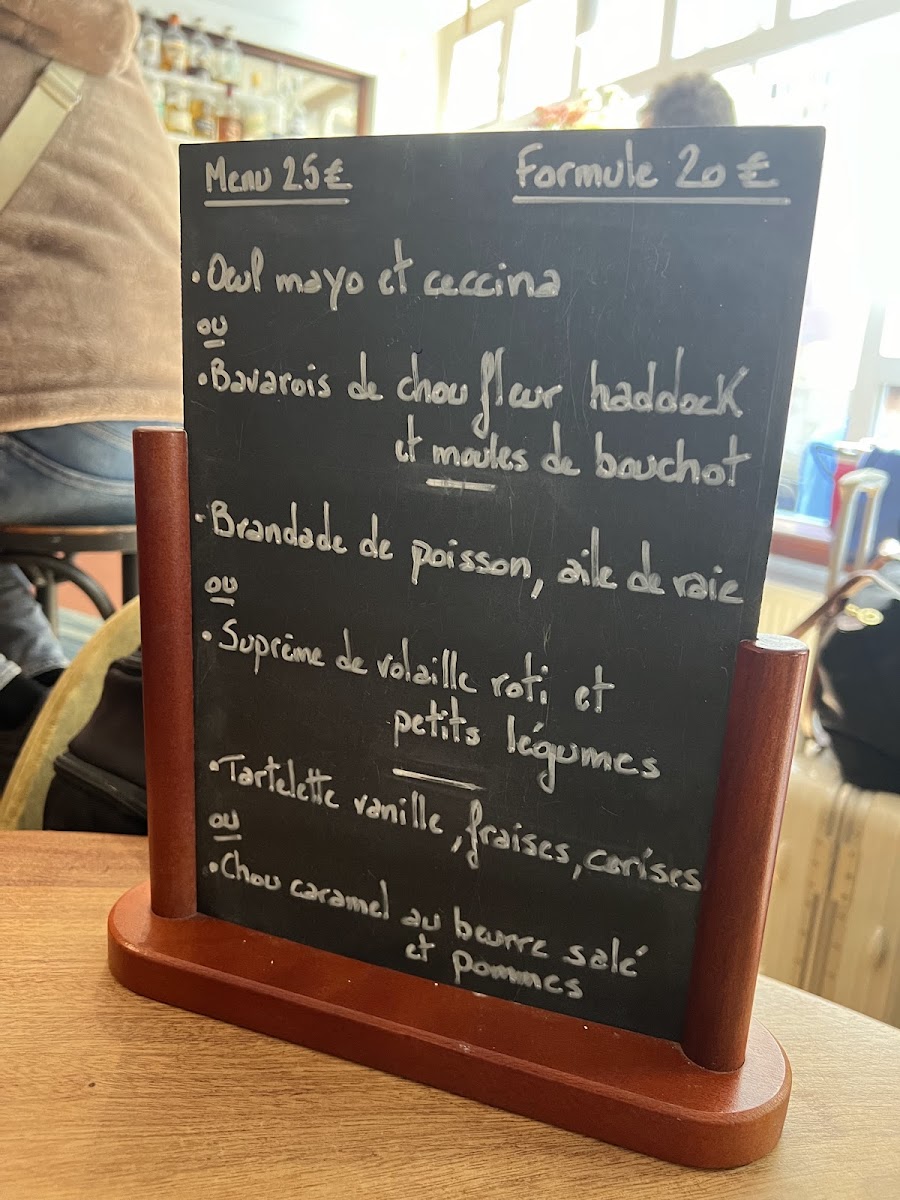 Menu 25€ Formule 20€
• Oeuf mayo et ceccina
ou
• Bavarois de chou fleur haddock
et moules de bouchot
• Brandade de poisson, aile de raie
ou
• Suprême de volaille roti et
petits légumes
• Tartelette vanille, fraises, cerises
ou
• Chou caramel au beurre salé
et pommes